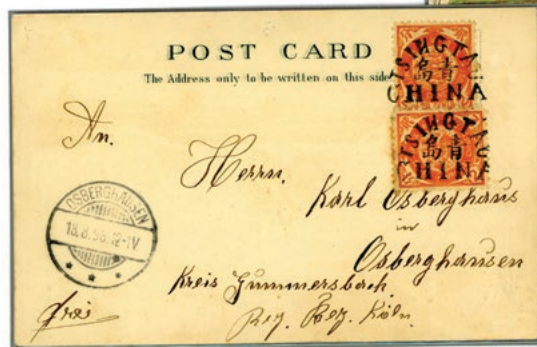 POST CARD
The Address only to be written on this side
TSINGTAU
青島
CHINA
TSINGTAU
青島
CHINA
An.
Herrn.
Karl Osberghaus
in
Osberghausen
Kreis Gummersbach
Reg. Bez. Köln.
frei
OSBERGHAUSEN
12-1V